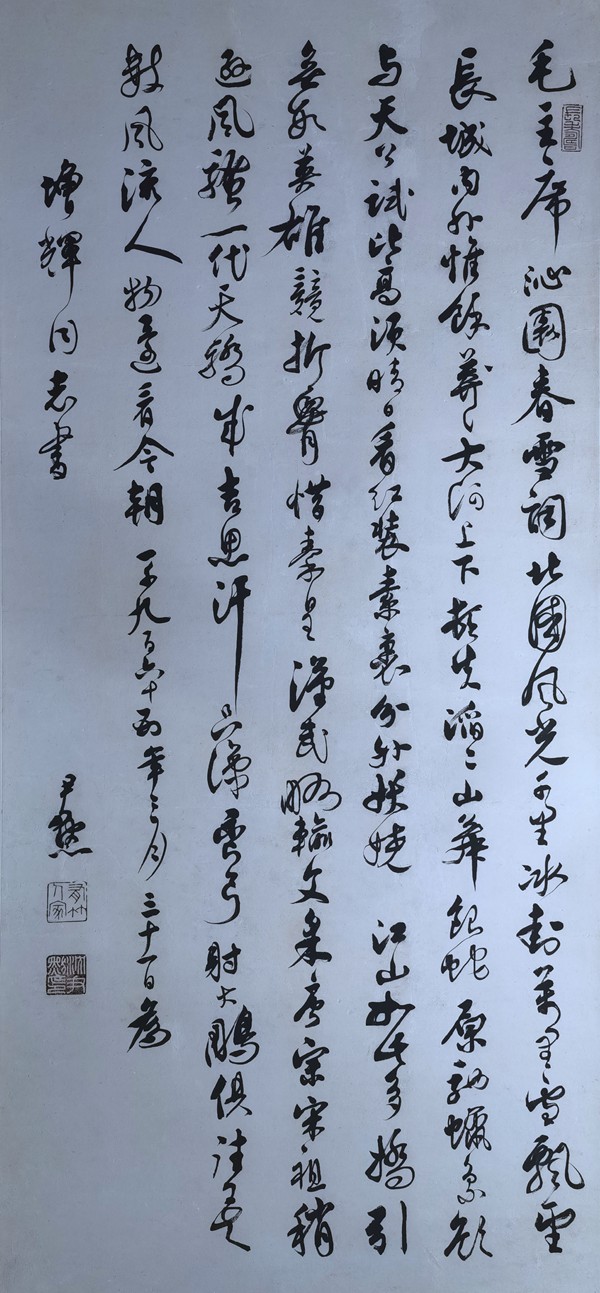 毛主席沁園春雪詞北國風光千里冰封萬里雪飄望
長城內外惟餘莽〻大河上下頓失滔〻山舞銀蛇原馳蠟象欲
与天公試比高須晴日看紅裝素裹分外妖嬈 江山如此多嬌引
無數英雄競折腰惜秦皇漢武略輸文采唐宗宋祖稍
遜風騷一代天驕成吉思汗只識彎弓射大鵰俱往矣
數風流人物還看今朝 一千九百六十四年三月三十一日為
增輝同志書 尹默